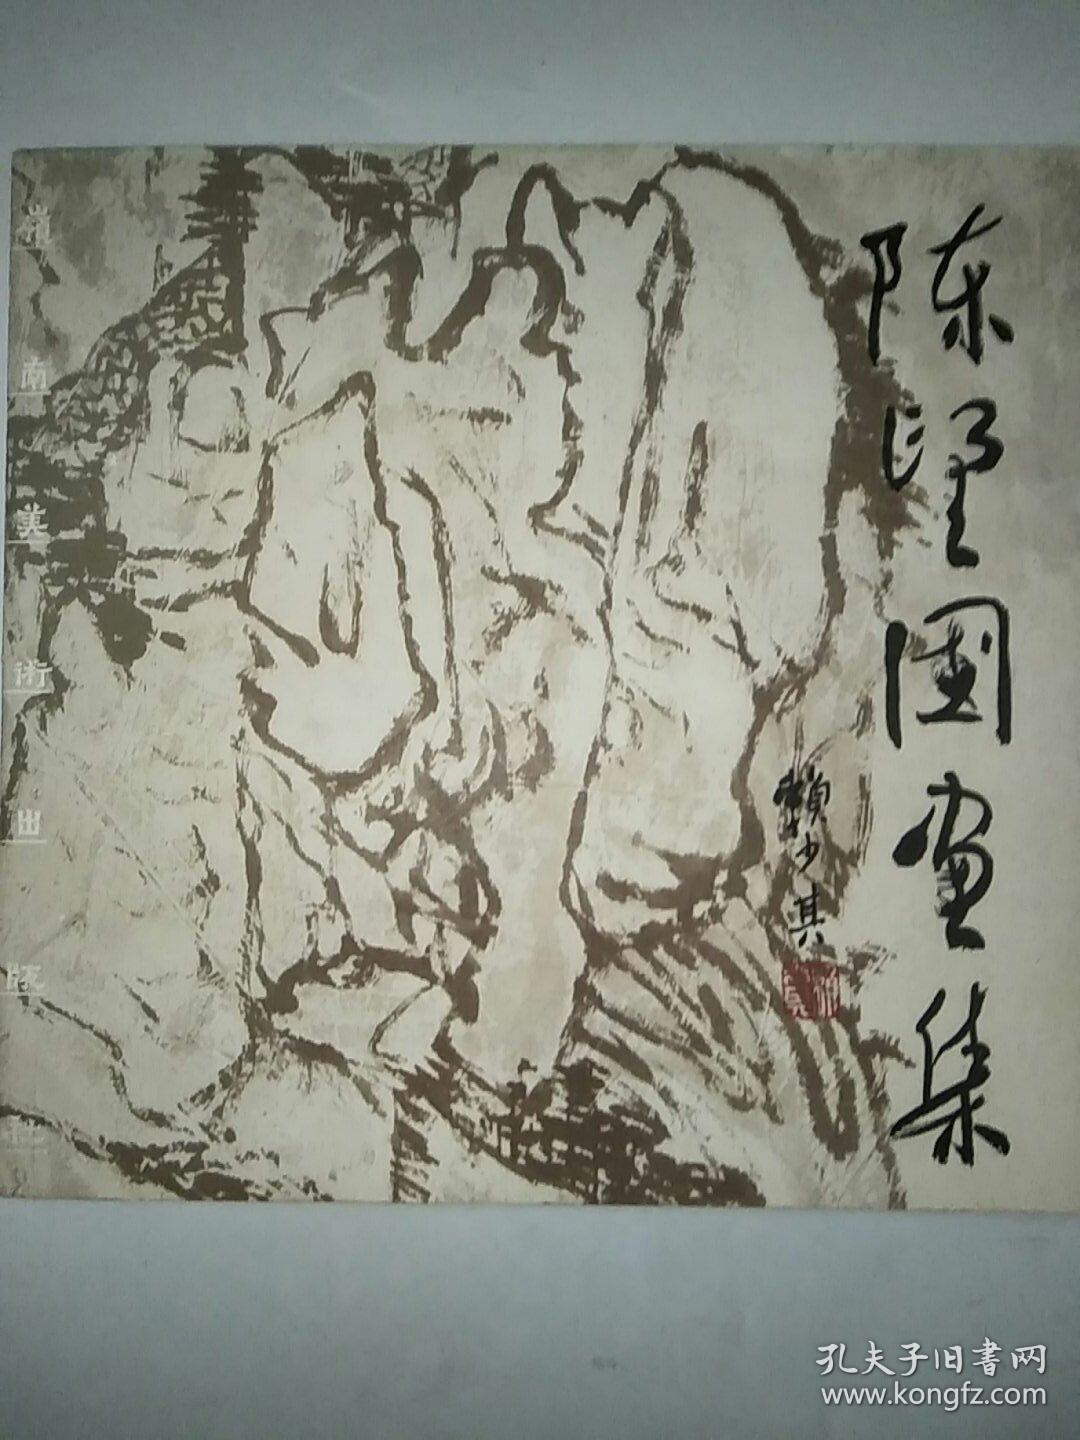 陈望国画集
赖少其
嶺南美術出版社
孔夫子旧書网
www.kongfz.com